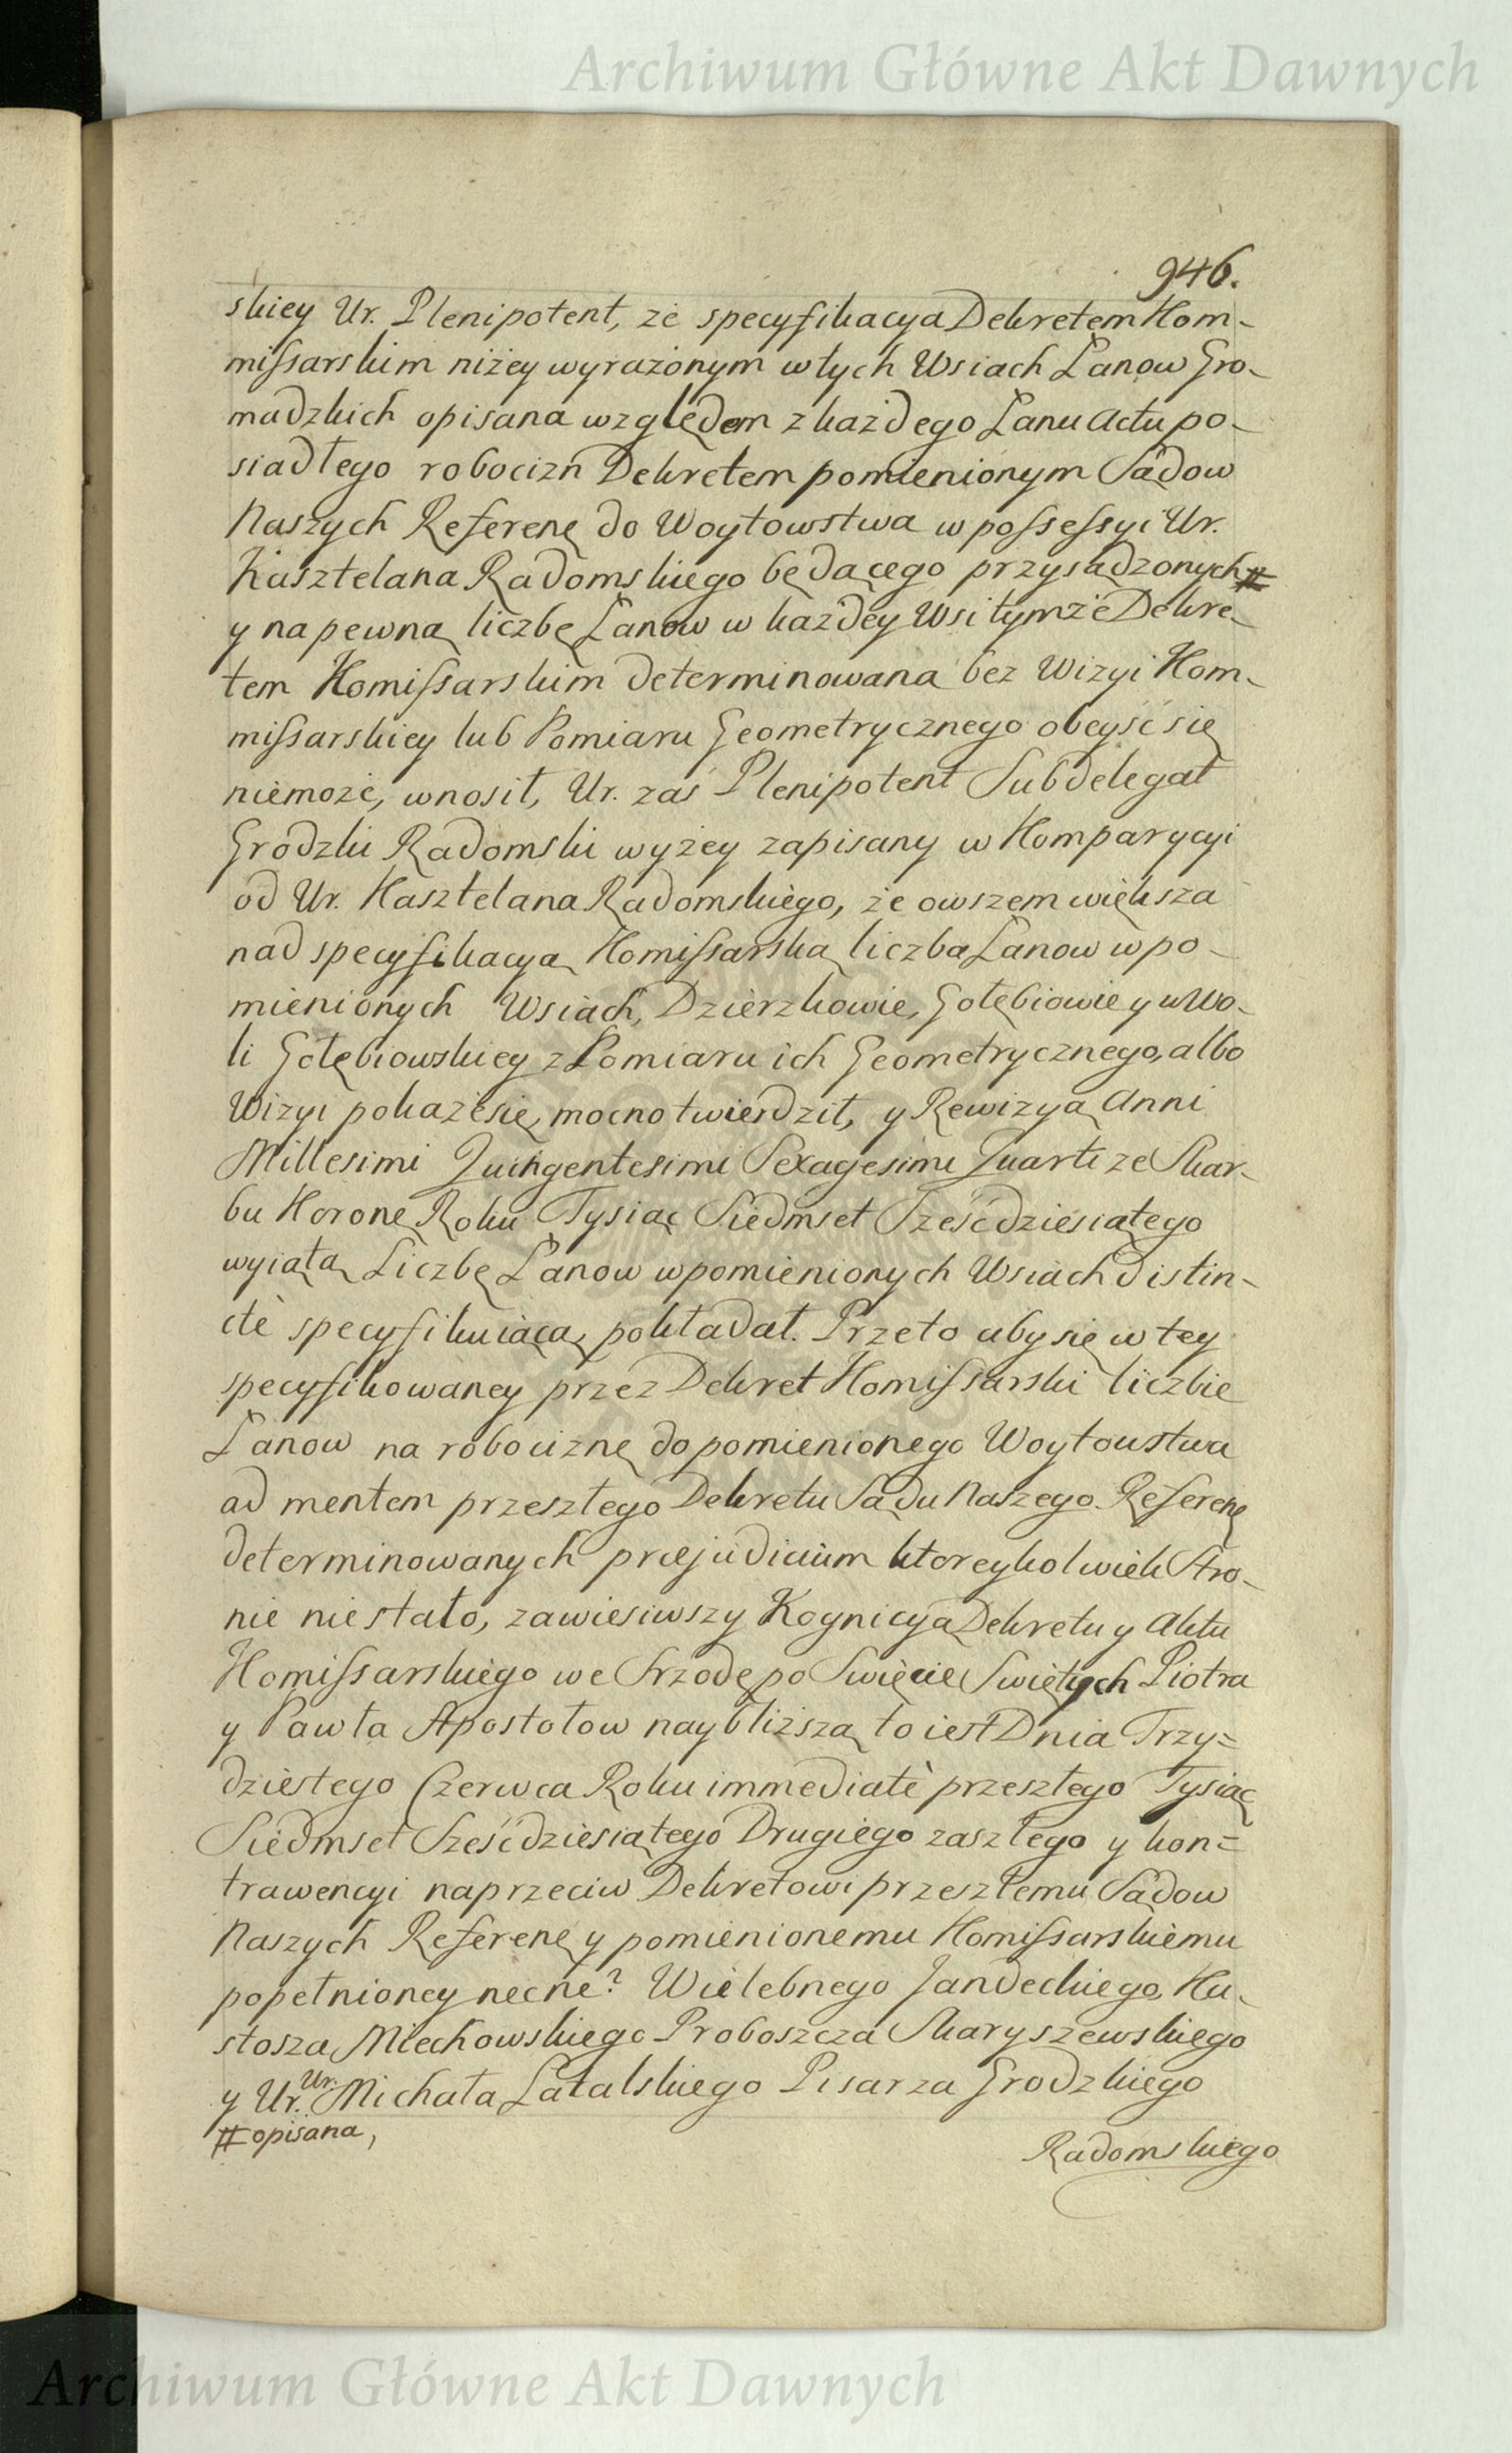 Archiwum Główne Akt Dawnych
946.
skiey Ur. Plenipotent, że specyfikacya Dekretem Kom-
missarskim niżey wyrażonym w tych Wsiach Łanow Gro-
madzkich opisana względem z każdego Łanu Actu po-
siadłego robocizn Dekretem pomienionym Sądow
Naszych Referen. do Woytowstwa w possessyi Ur.
Kasztelana Radomskiego będącego przysądzonych #
y na pewną liczbę Łanow w każdey Wsi tymże Dekre-
tem Komissarskim determinowana bez Wizyi Kom-
missarskiey lub Pomiaru Geometrycznego obeyść się
niemoże, wnosił, Ur. zaś Plenipotent Subdelegat
Grodzki Radomski wyżey zapisany w Komparycyi
od Ur. Kasztelana Radomskiego, że owszem większa
nad specyfikacyą Komissarską liczba Łanow w po-
mienionych Wsiach, Dzierzkowie, Gołębiowie y w Wo-
li Gołębiowskiey z Pomiaru ich Geometrycznego, albo
Wizyi pokaże się, mocno twierdził, y Rewizyą Anni
Millesimi Quingentesimi Sexagesimi Quarti ze Skar-
bu Koron. Roku Tysiąc Siedmset Sześćdziesiątego
wyiątą Liczbę Łanow w pomienionych Wsiach distin-
ctè specyfikuiącą, pokładał. Przeto aby się w tey
specyfikowaney przez Dekret Komissarski liczbie
Łanow na robociznę do pomienionego Woytowstwa
ad mentem przeszłego Dekretu Sądu Naszego Referen.
determinowanych præjudicium ktoreykolwiek Stro-
nie niestało, zawiesiwszy Kognicyą Dekretu y Aktu
Komissarskiego we Srzodę po Swięcie Swiętych Piotra
y Pawła Apostołow naybliższą to iest Dnia Trzy=
dziestego Czerwca Roku immediatè przeszłego Tysiąc
Siedmset Sześćdziesiątego Drugiego zaszłego y kon=
trawencyi naprzeciw Dekretowi przeszłemu Sądow
Naszych Referen. y pomienionemu Komissarskiemu
popełnioney necne? Wielebnego Jandeckiego, Ku-
stosza Miechowskiego Proboszcza Skaryszewskiego
y Ur. Ur. Michała Latalskiego Pisarza Grodzkiego
# opisana,
Radomskiego
Archiwum Główne Akt Dawnych